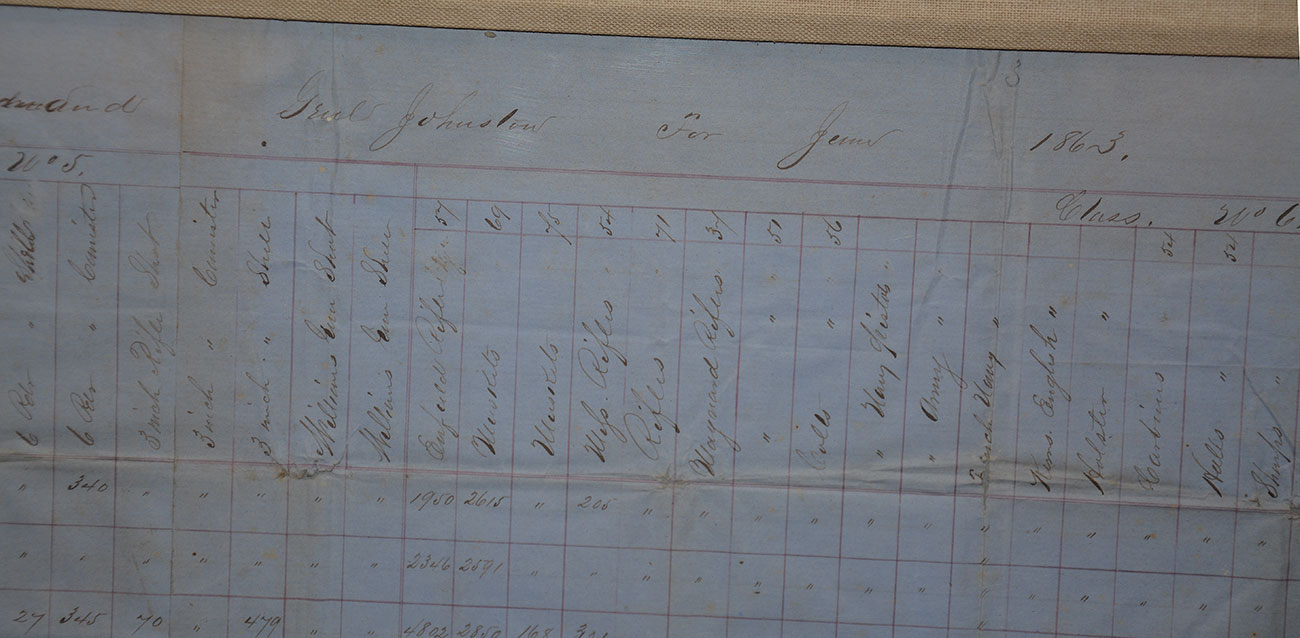 Genl Johnston For June 1863.
No 5. Class. No 6
6 Pdr " Shells
6 Pdr " Canister
3 inch Rifle Shot
3 inch " Canister
3 inch " Shell
Williams Gun Shot
Williams Gun Shell
Enfield Rifles 57
Muskets 69
Muskets 75
Miss. Rifles 54
Rifles 71
Maynard Rifles 37
" " 51
Colts " 56
" Navy Pistols
" Army "
French Navy "
Kans. English "
Holster "
Carbines 54
Halls " 52
Sharps "
" 340 " " " " " 1950 2615 " 205 " " " " " " " " " " "
" " " " " " " 2346 2591 " " " " " " " " " " " " "
27 345 70 " 479 " " 4802 2850 168